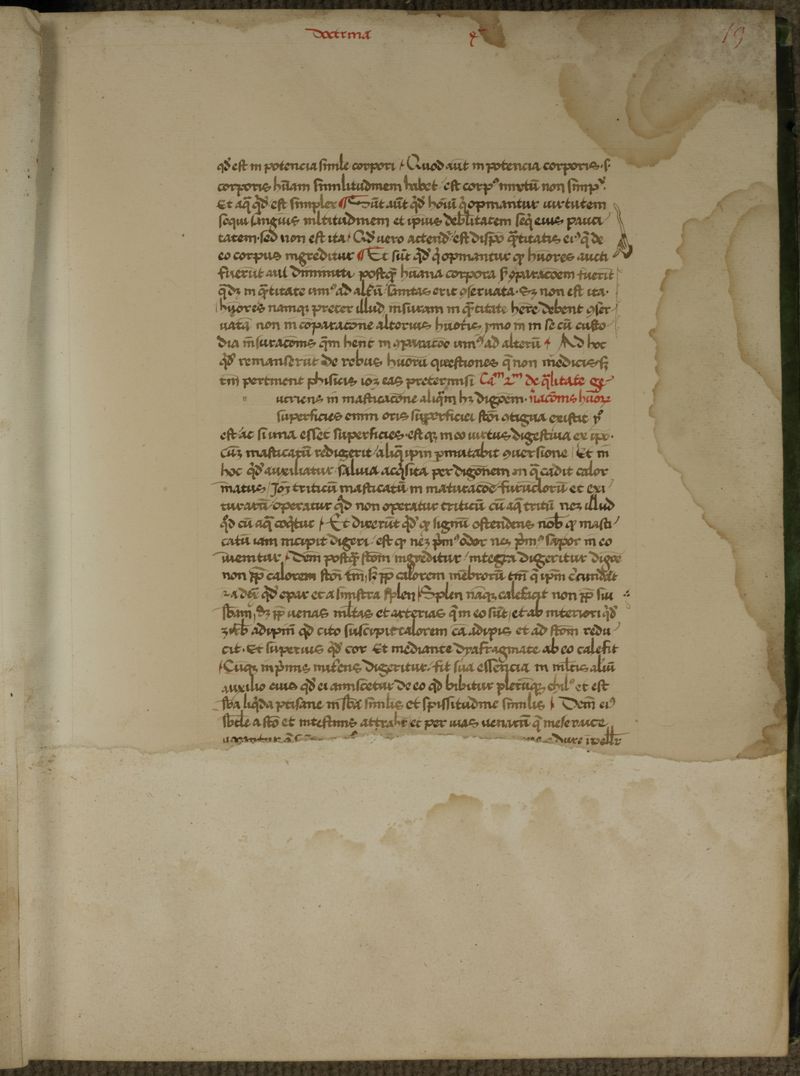 Doctrina 4ᵃ
19
qd̄ est in potencia simile corpori / Quod aūt in potencia corporis · s·
corporis hūani similitudinem habet / est corpꝰ mixtū non simpˣ.
Et aq̄ qd̄ est simplex ¶ Sūt aūt qd̄ hoīu q̄ opinantur uirtutem
sequi sanguis multitudinem et ipius debilitatem seq̄ eius pauci
tatem · sed non est ita / Qd̄ uero actend̄ est dispō q̄titatis eiꝰ q̄ de
eo corpus ingreditur ¶ Et sūt qd̄ q̄ opinantur ꝙ huores aucti
fuerūt aul diminuti postq̄ huana corpora ꝑ oparacoem fuerit
qd̄ in q̄titate uniꝰ ad alt'ū / sanitas erit ɔseruata · Sꝫ non est ita ·
huores namqꝫ preter illud mēsuram in q̄titate here debent ɔser
uatā non in coparacone alterius huoris, ymo in in se cū custo
dia mēsuracionis q̄m hent in oparacoe uniꝰ ad alterū / Ad hoc
qd̄ remanserūt de rebus huorū questiones q̄ non medicis sꝫ
tm̄ pertinent phisicis ioꝫ eas pretermisi Caᵐ 2ᵐ de q̄litate ge
uttriens in masticacone aliq̄m hꝫ digoēm · nacionis huoꝝ
superficies enim oris superficiei stōi ɔtigua existit
est ac si una esset superficies · est qꝫ in eo uirtus digestiua ex ipo ·
Cūqꝫ masticatū redigerit / aliq̄ ipm̄ ꝑmutabit ɔuersione / Et in
hoc qd̄ auxiliatur saliua acq̄sita per digōnem in q̄ cadit calor
inatus / Ioꝫ triticū masticatū in maturacoē furuclorū et exi
turarū operatur qd̄ non operatur triticū cū aq̄ tritū neꝫ illud
qd̄ cū aq̄ coq̄tur / Et dixerūt qd̄ ꝙ signū ostendens nob ꝙ masti
catū iam incipit digeri / est ꝙ neꝫ pmꝰ odor neꝫ pmꝰ sapor in eo
inuenitur / Dein postq̄ stōm ingreditur / integra digeritur digoē
non ꝓp̄ calorem stōi tm̄, sꝫ ꝓp̄ calorem mēbrorū tm̄ q̄ ipm̄ circundāt
· a dex̄ qd̄ epar et a sinistra splen / Splen nāqꝫ calefacit non ꝓp̄ sui
sbam, sꝫ ꝓp̄ uenas multas et arterias q̄ in eo sūt, et ab interiori qd̄
zirb adipinū qd̄ cito suscipit calorem cā adipis et ad stōm redu
cit · Et superius qd̄ cor Et mediante dyafragmate ab eo calefit
Cūqꝫ in prīmis nutriens digeritur / fit sua essencia in multis aīaliū
auxilio eius qd̄ ei amiscetur de eo qd̄ bibitur plerūqꝫ chilꝰ et est
sba liqda ptisane in sba similis et spissitudine similis / Dein eiꝰ
sbcle a stō et intestinis attrahit et per uias uenarū q̄ meseraice